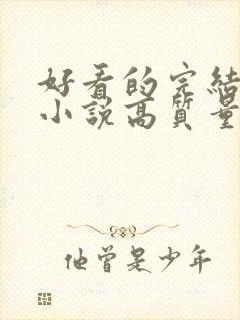 好看的完结
小说高质量
他曾是少年